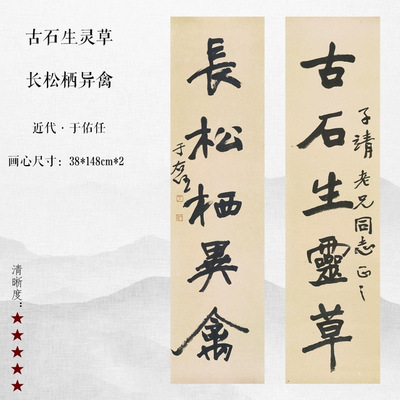 古石生灵草
长松栖异禽
近代·于佑任
画心尺寸：38*148cm*2
清晰度：★★★★★
古石生靈草
子靖老兄同志正之
長松栖異禽
于右任